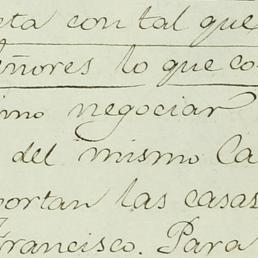 eta con tal que
eñores lo que co
imo negociar
del mismo Ca
portan las casas
Francisco. Para